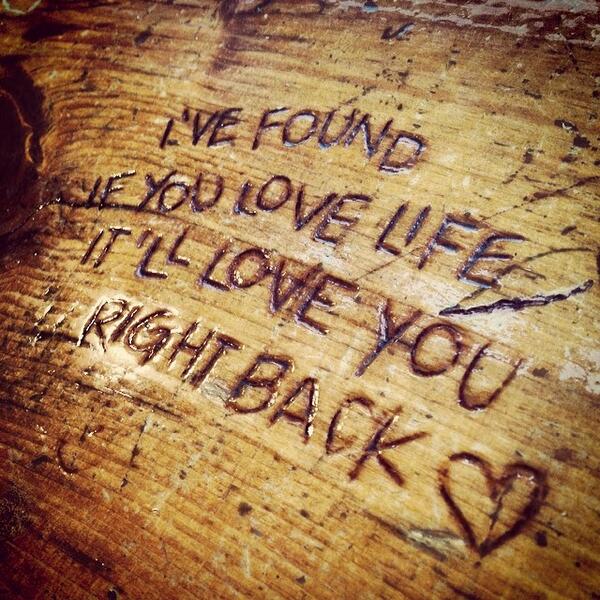 I'VE FOUND
IF YOU LOVE LIFE
IT'LL LOVE YOU
RIGHT BACK